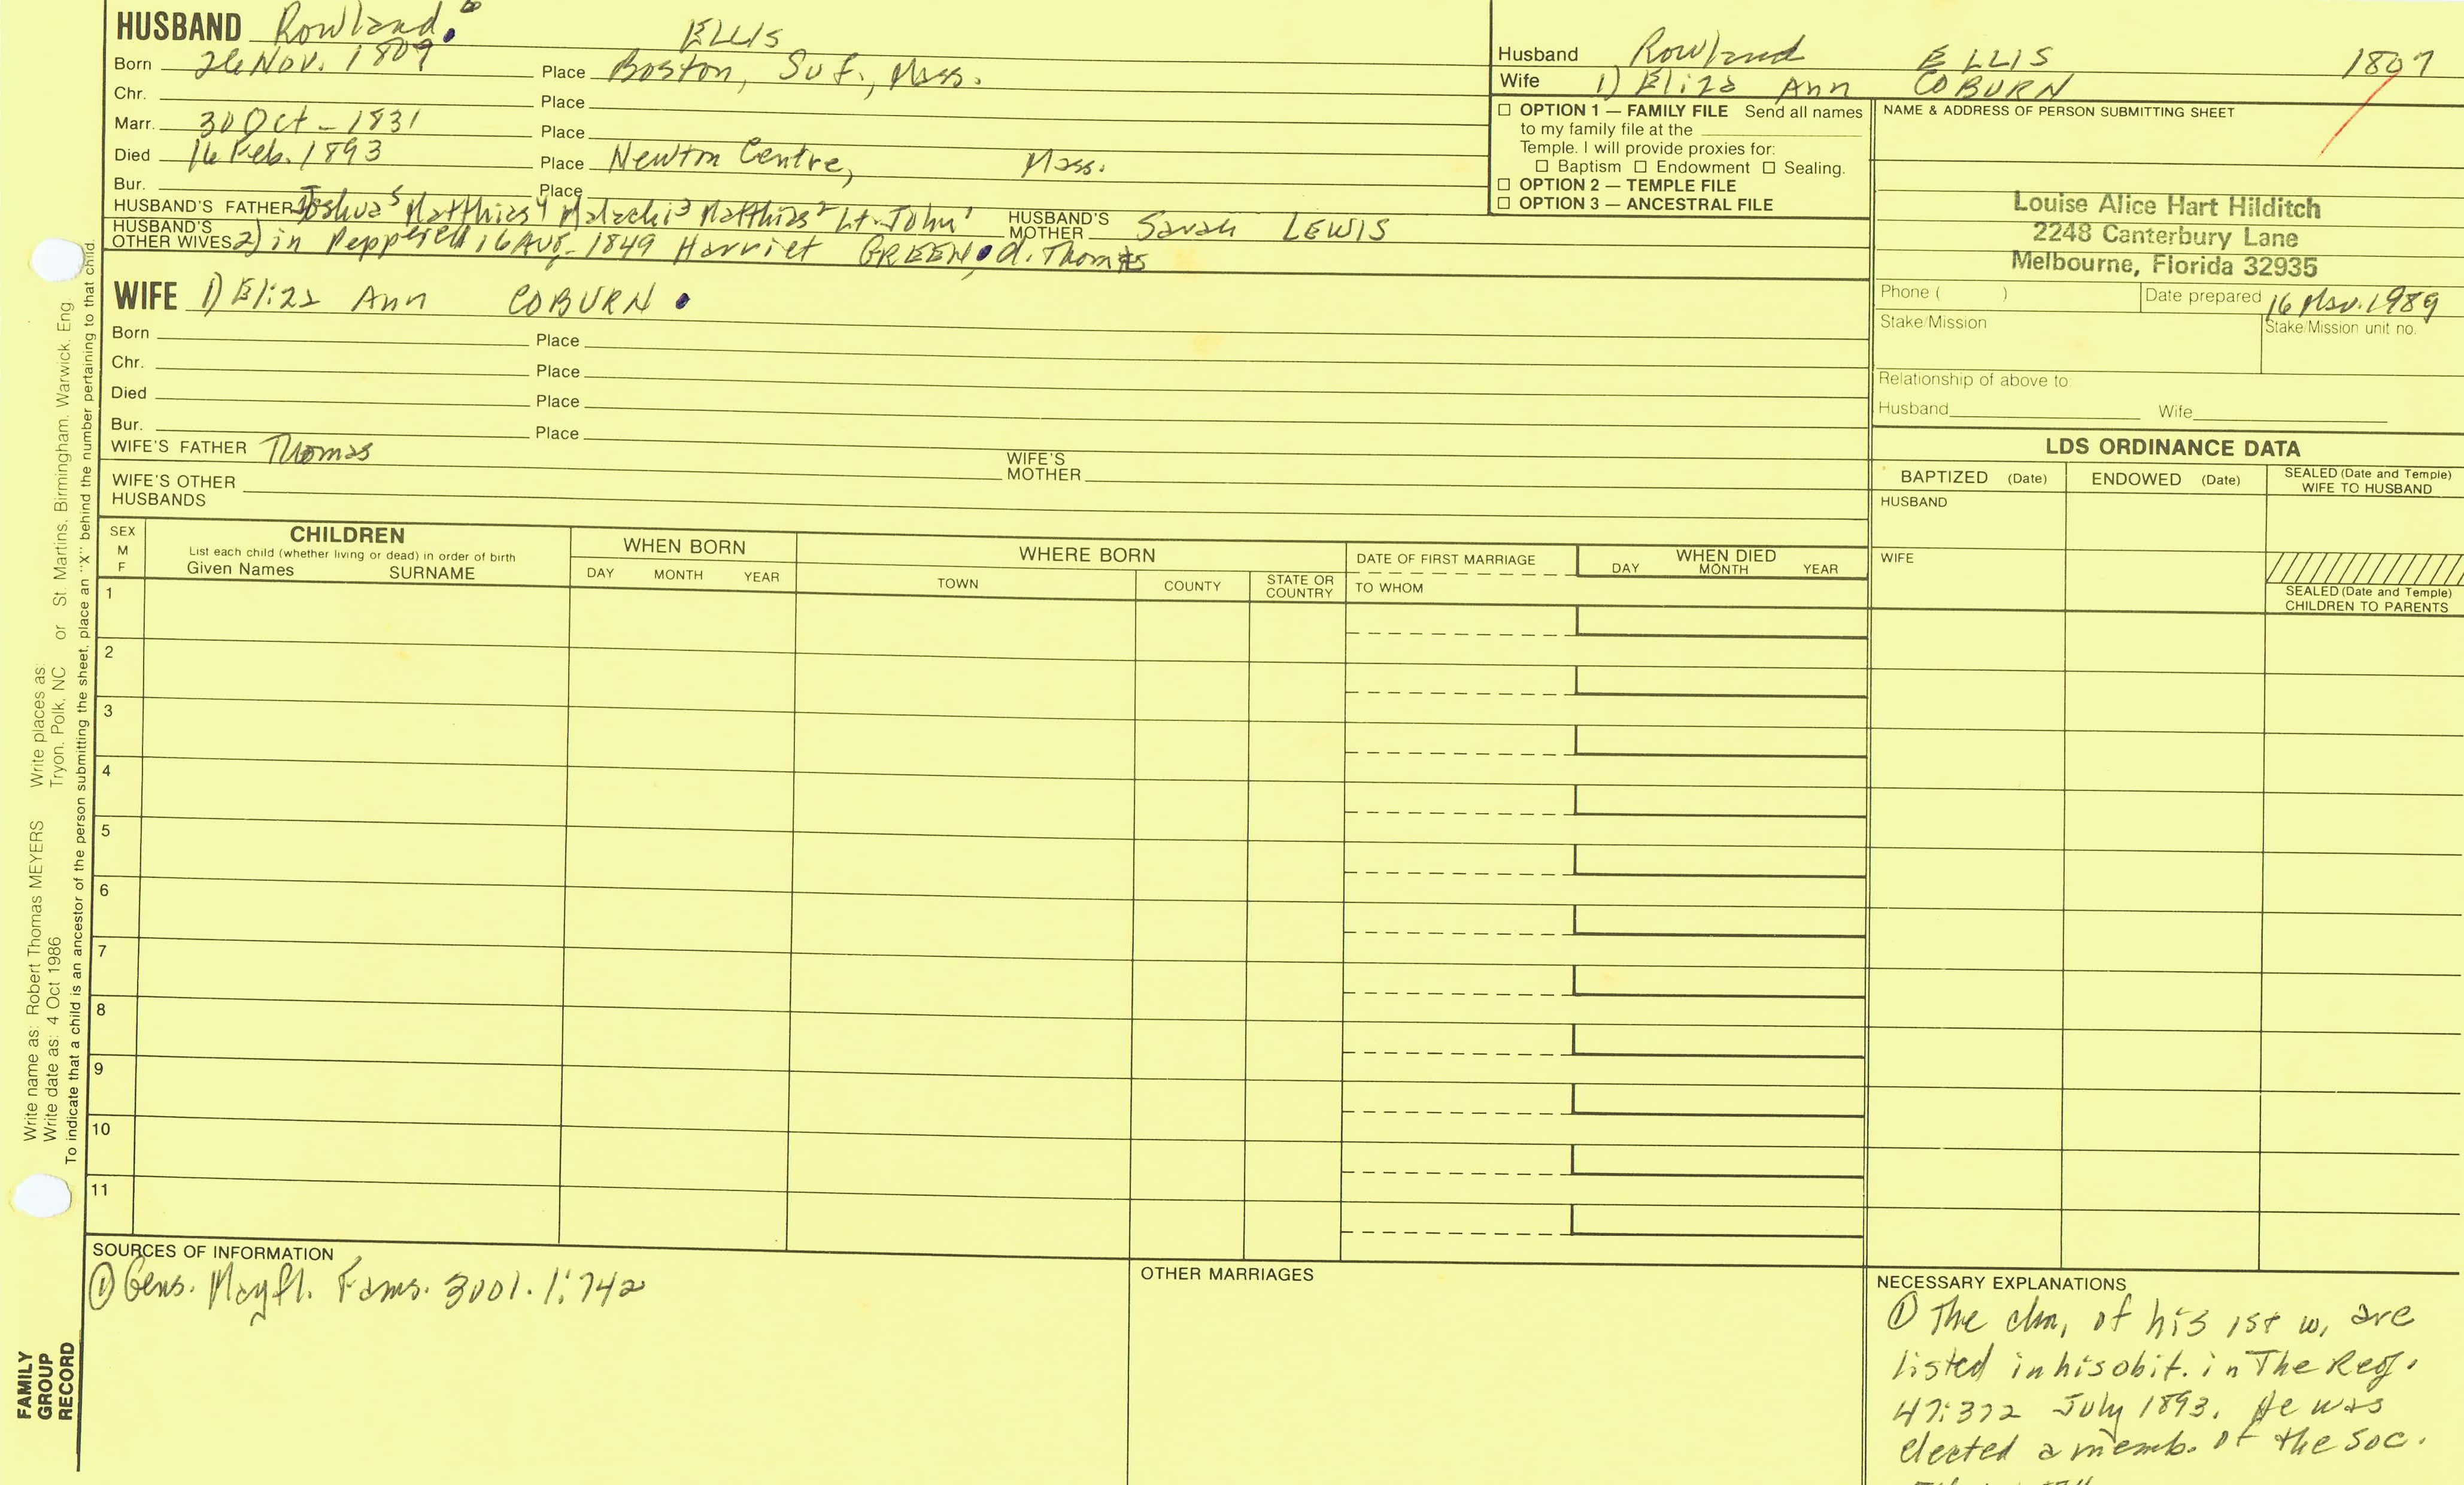 HUSBAND Rowland 6 ELLIS
Born 26 Nov. 1809 Place Boston, Suf., Mass.
Chr. Place
Marr. 30 Oct - 1831 Place
Died 16 Feb. 1893 Place Newton Centre, Mass.
Bur. Place
HUSBAND'S FATHER Joshua 5 Matthias 4 Malachi 3 Matthias 2 Lt. John 1 HUSBAND'S MOTHER Sarah LEWIS
HUSBAND'S OTHER WIVES 2) in Pepperell 16 Aug- 1849 Harriet GREEN, d. Thomas
WIFE 1) Eliza Ann COBURN
Born Place
Chr. Place
Died Place
Bur. Place
WIFE'S FATHER Thomas WIFE'S MOTHER
WIFE'S OTHER HUSBANDS
Husband Rowland ELLIS 1809
Wife 1) Eliza Ann COBURN
OPTION 1 — FAMILY FILE Send all names
to my family file at the
Temple. I will provide proxies for:
Baptism Endowment Sealing.
OPTION 2 — TEMPLE FILE
OPTION 3 — ANCESTRAL FILE
NAME & ADDRESS OF PERSON SUBMITTING SHEET
Louise Alice Hart Hilditch
2248 Canterbury Lane
Melbourne, Florida 32935
Phone ( ) Date prepared 16 1989
Stake/Mission Stake/Mission unit no.
Relationship of above to
Husband Wife
LDS ORDINANCE DATA
BAPTIZED (Date) ENDOWED (Date) SEALED (Date and Temple) WIFE TO HUSBAND
HUSBAND
WIFE
SEALED (Date and Temple)
CHILDREN TO PARENTS
SEX M F
CHILDREN
List each child (whether living or dead) in order of birth
Given Names SURNAME
WHEN BORN
DAY MONTH YEAR
WHERE BORN
TOWN COUNTY STATE OR COUNTRY
DATE OF FIRST MARRIAGE
TO WHOM
WHEN DIED
DAY MONTH YEAR
1
2
3
4
5
6
7
8
9
10
11
SOURCES OF INFORMATION
① Gens. Mayfl. Fams. 3001. 1:742
OTHER MARRIAGES
NECESSARY EXPLANATIONS
① The chn, of his 1st w, are
listed in his obit. in The Reg.
47:372 July 1893. He was
elected a memb. of the Soc.
Write name as: Robert Thomas MEYERS Write places as: St. Martins, Birmingham, Warwick, Eng
Write date as: 4 Oct 1986 Tryon, Polk, NC or
To indicate that a child is an ancestor of the person submitting the sheet, place an "X" behind the number pertaining to that child.
FAMILY
GROUP
RECORD